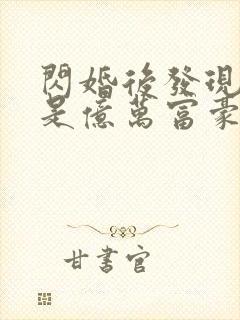 閃婚後發現
是億萬富豪
甘書官